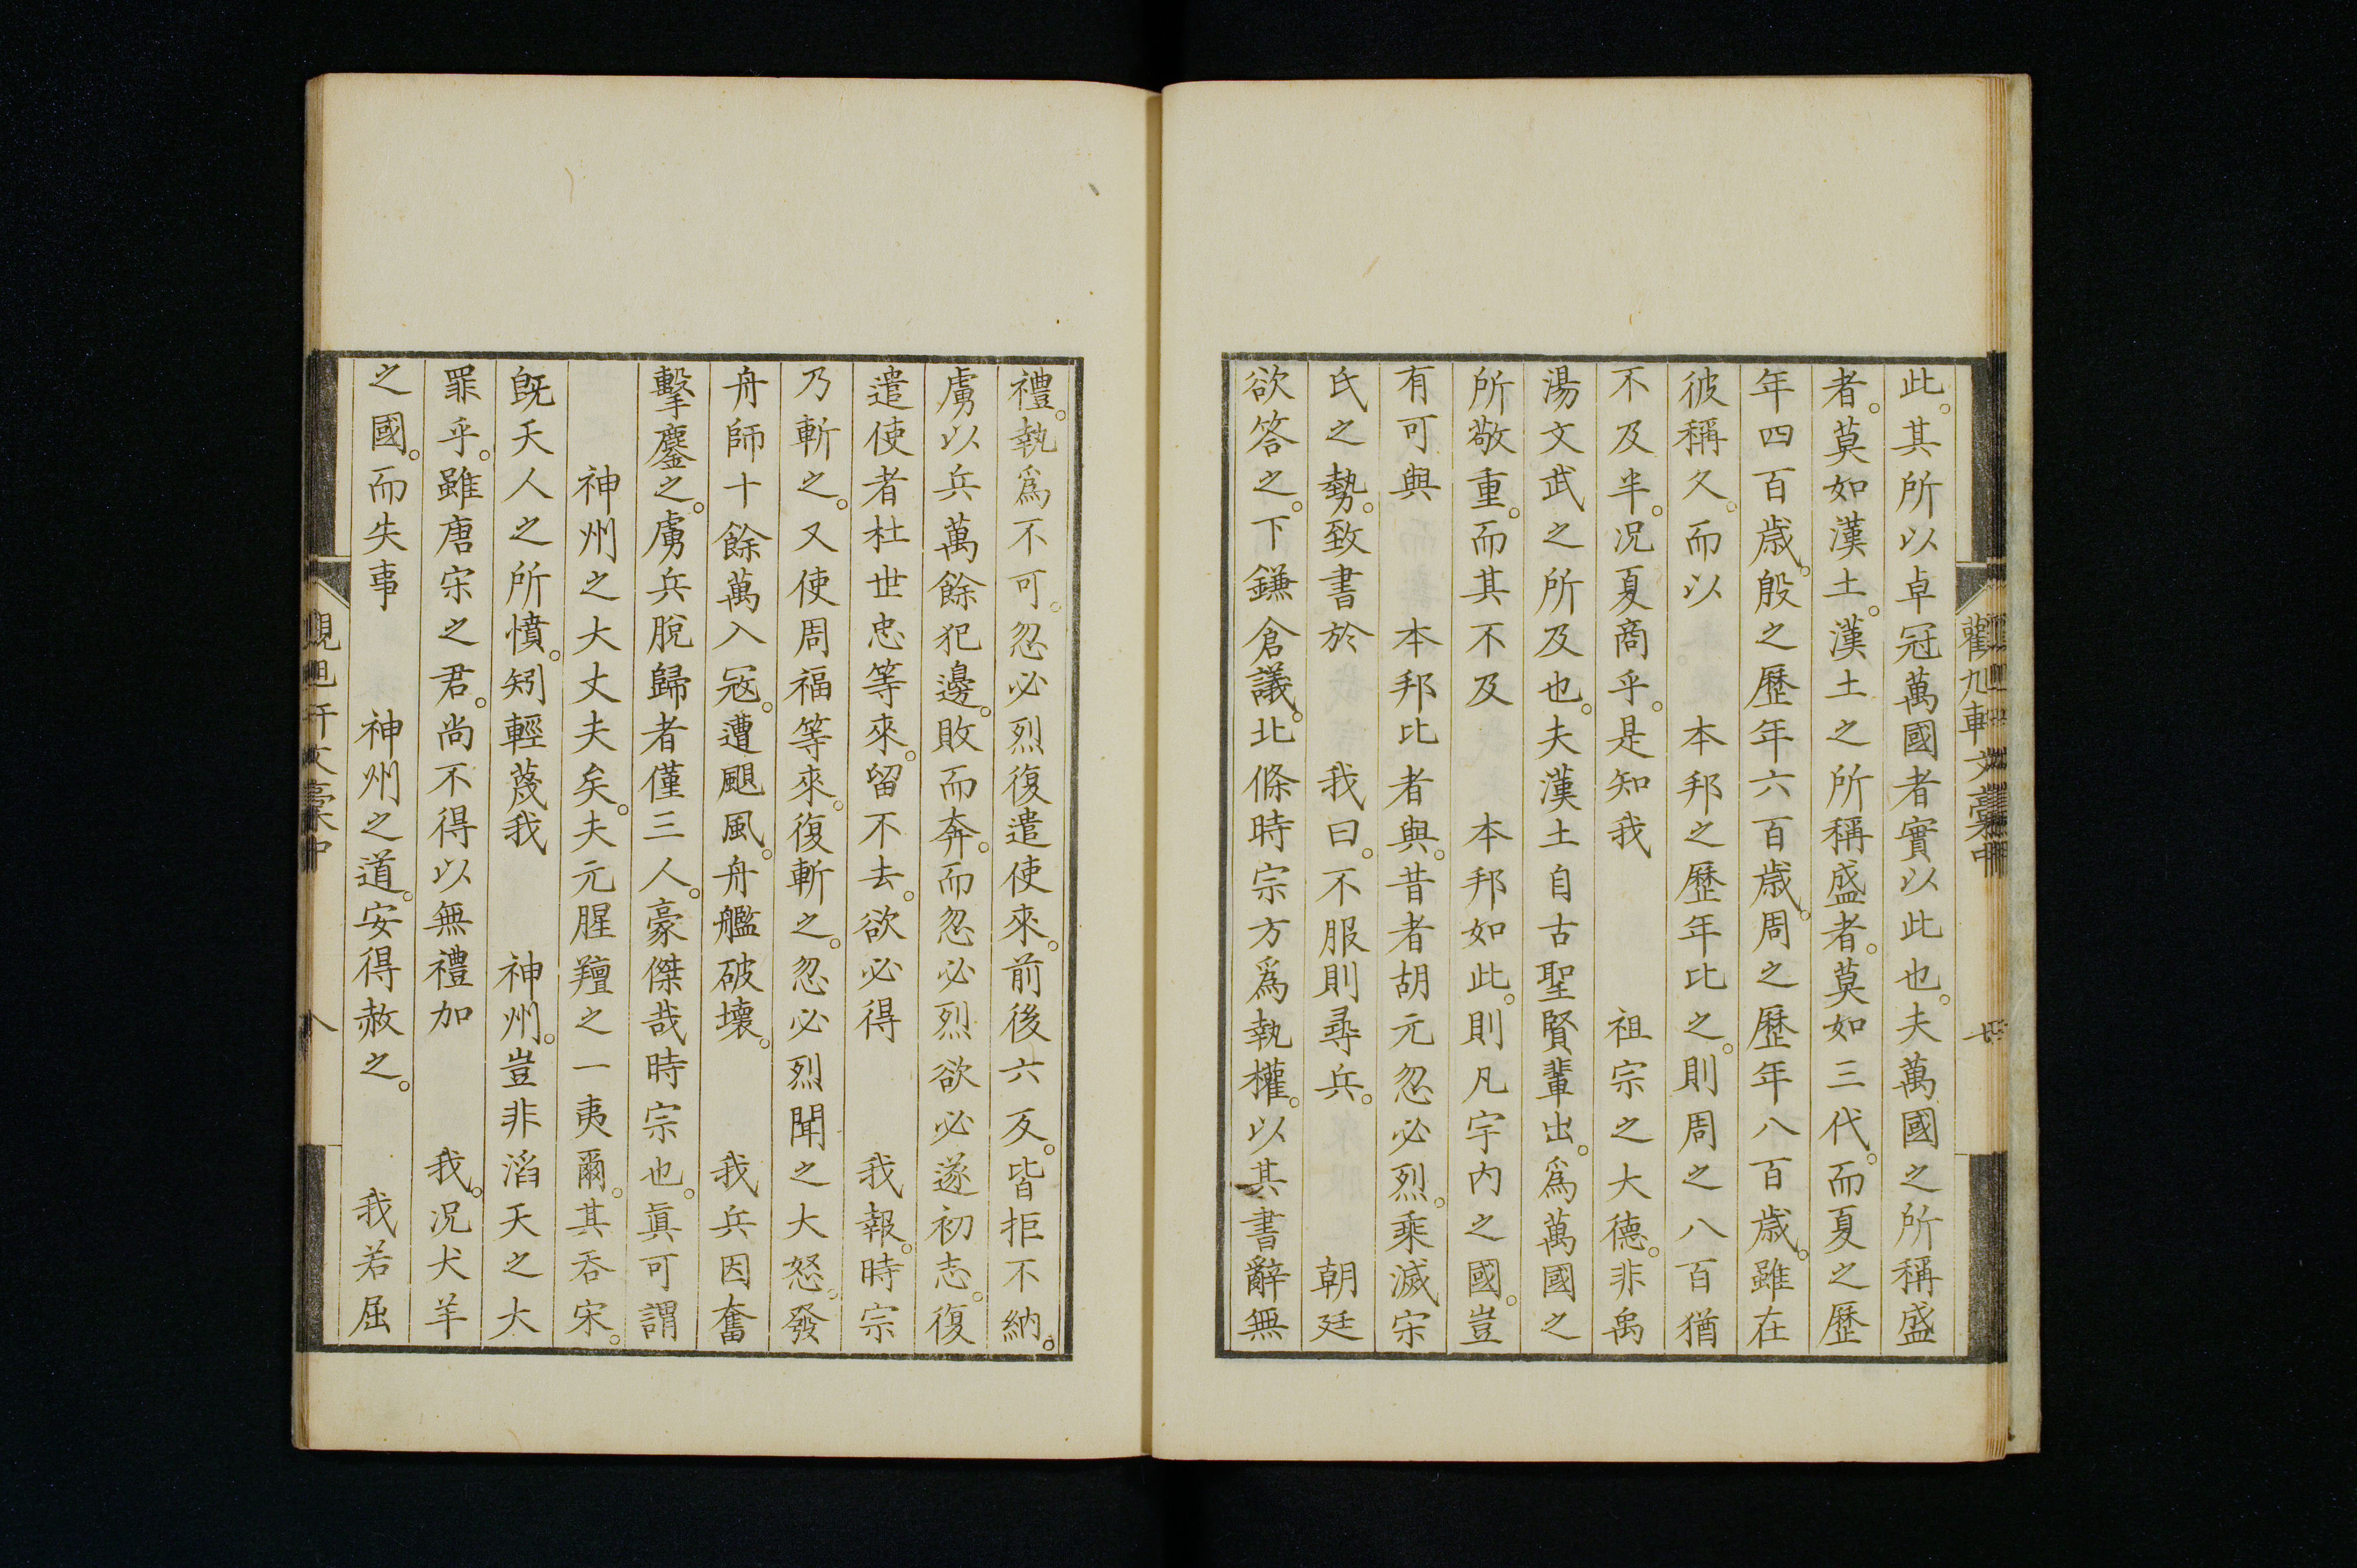 此。其所以卓冠萬國者實以此也。夫萬國之所稱盛
者。莫如漢土。漢土之所稱盛者。莫如三代。而夏之歷
年四百歳。殷之歷年六百歳。周之歷年八百歳。雖在
彼稱久。而以　本邦之歷年比之。則周之八百猶
不及半。况夏商乎。是知我　祖宗之大德。非禹
湯文武之所及也。夫漢土自古聖賢輩出。爲萬國之
所敬重。而其不及　本邦如此。則凡宇内之國。豈
有可與　本邦比者與。昔者胡元忽必烈。乘滅宋
氏之勢。致書於　我曰。不服則尋兵。　朝廷
欲答之。下鎌倉議。北條時宗方爲執權。以其書辭無
禮。執爲不可。忽必烈復遣使來。前後六反。皆拒不納。
虜以兵萬餘犯邊。敗而奔。而忽必烈欲必遂初志。復
遣使者杜世忠等來。留不去。欲必得　我報。時宗
乃斬之。又使周福等來。復斬之。忽必烈聞之大怒。發
舟師十餘萬入冦。遭颶風。舟艦破壞。　我兵因奮
擊鏖之。虜兵脫歸者僅三人。豪傑哉時宗也。眞可謂
神州之大丈夫矣。夫元腥羶之一夷爾。其呑宋。
既天人之所憤。矧輕蔑我　神州。豈非滔天之大
罪乎。雖唐宋之君。尚不得以無禮加　我。况犬羊
之國。而失事　神州之道。安得赦之。　我若屈
觀旭軒文稾中
七
觀旭軒文稾中
八